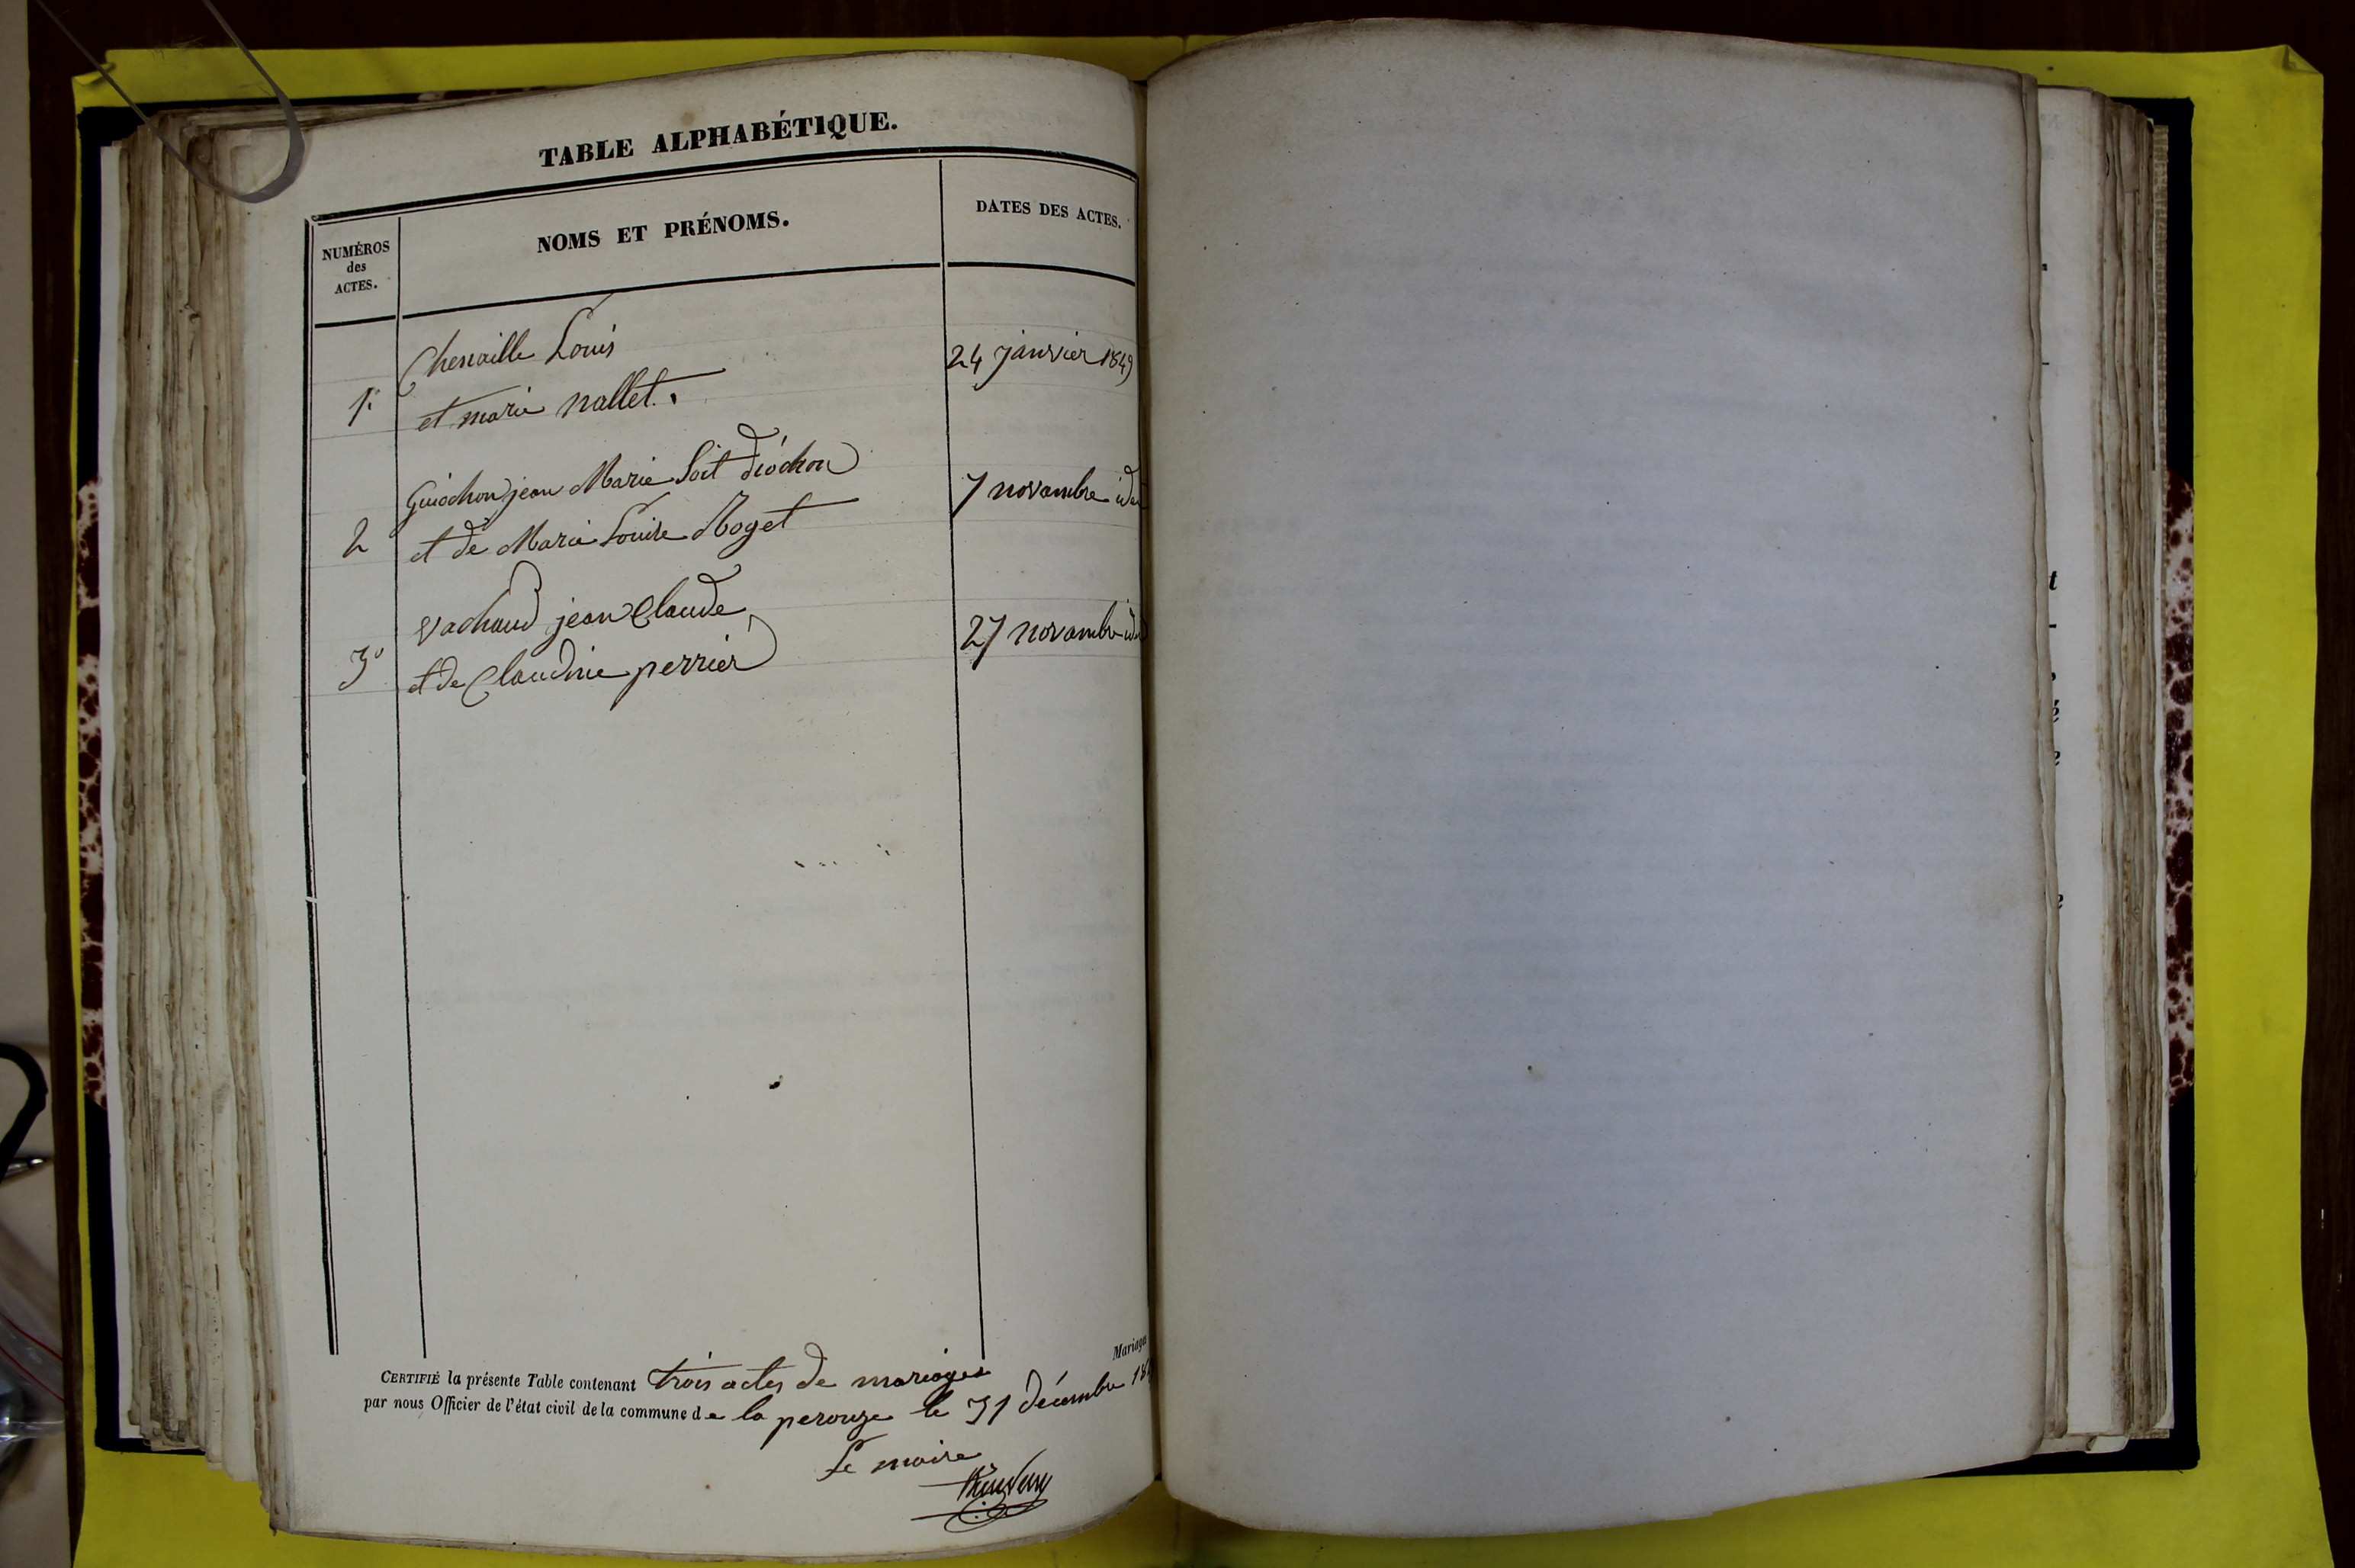 TABLE ALPHABÉTIQUE.
NUMÉROS
des
ACTES.
NOMS ET PRÉNOMS.
DATES DES ACTES.
Chenaille Louis
24 janvier 1849
1º
et marie nallet.
Guiochon jean Marie Soit diochon
7 novembre
2
et de Marie Louise Roget
vachaud jean Claude
27 novembre
3º
et de Claudine perrier
Mariages
CERTIFIÉ la présente Table contenant trois actes de mariages
par nous Officier de l'état civil de la commune de la perouze le 31 décembre
Le maire